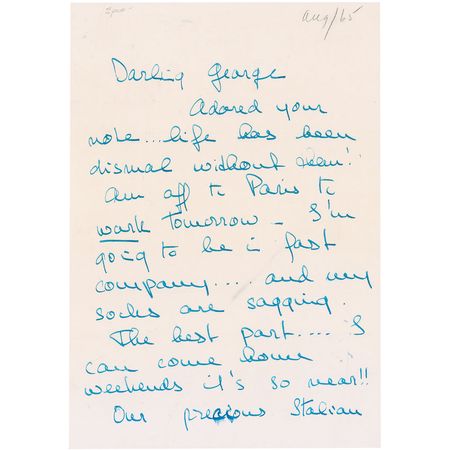 Aug/65
Darling George
Adored your
note... life has been
dismal without
Am off to Paris to
work tomorrow – I'm
going to be in fast
company.... and my
socks are sagging.
The best part..... I
can come home
weekends it's so near!!
Our precious Italian